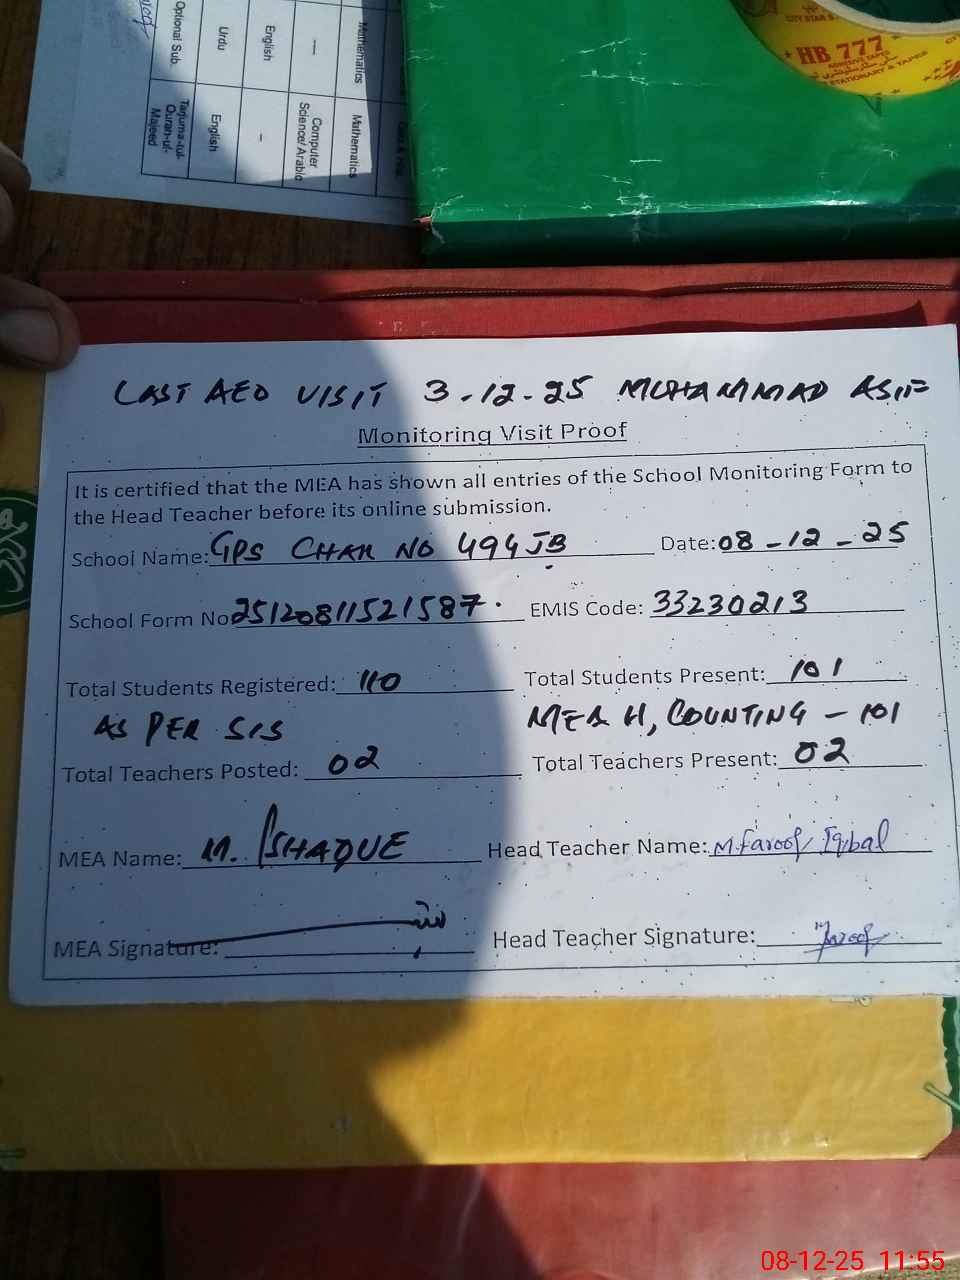 Optional Sub.
Urdu
English
—
Mathematics
Tarjuma-tul-
Quran-ul-
Majeed
English
-
Computer
Science/Arabic
Mathematics
CITY STAR S
HB 777
ADHESIVE TAPES
STATIONARY & TAPES
LAST AEO VISIT 3-12-25 MUHAMMAD ASIF
Monitoring Visit Proof
It is certified that the MEA has shown all entries of the School Monitoring Form to
the Head Teacher before its online submission.
School Name: GPS CHAK NO 494 JB Date: 08-12-25
School Form No 25120811521587. EMIS Code: 33230213
Total Students Registered: 110 Total Students Present: 101
AS PER SIS MEA H, COUNTING - 101
Total Teachers Posted: 02 Total Teachers Present: 02
MEA Name: M. ISHAQUE Head Teacher Name: M. Farooq Iqbal
MEA Signature: Head Teacher Signature: Farooq
08-12-25 11:55